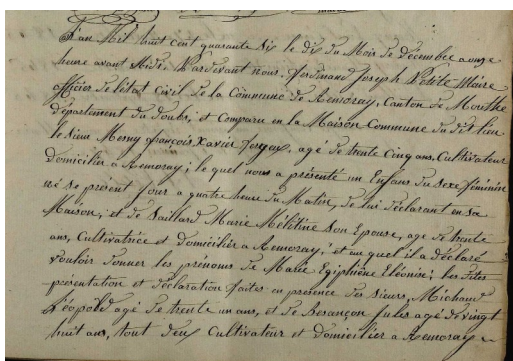 L'an Mil huit cent quarante Six le dix du Mois de Décembre a onze
heure avant Midi. Pardevant nous, Ferdinand Joseph Maire
officier de l'état Civil de la Commune de Remoray, Canton de Mouthe
département du Doubs, est Comparu en la Maison Commune du dit lieu
le Sieur Mesny françois Xavier agé de trente Cinq ans, Cultivateur
Domicilier a Remoray; le quel nous a présenté un Enfans du Sexe féminin
né se présent Jour a quatre heure du Matin, de lui déclarant en sa
Maison, et de Saillard Marie Mélitine Son Epouse, age de trente
ans, Cultivatrice et Domicilier a Remoray; et au quel il a déclaré
vouloir donner les prénoms de Marie Egiphène Eléonin; les dites
présentation et déclaration faites en présence des Sieurs, Michaud
Léopold agé de trente un ans, et de Besançon Jules agé de vingt
huit ans, tout deux Cultivateur et Domicilier a Remoray